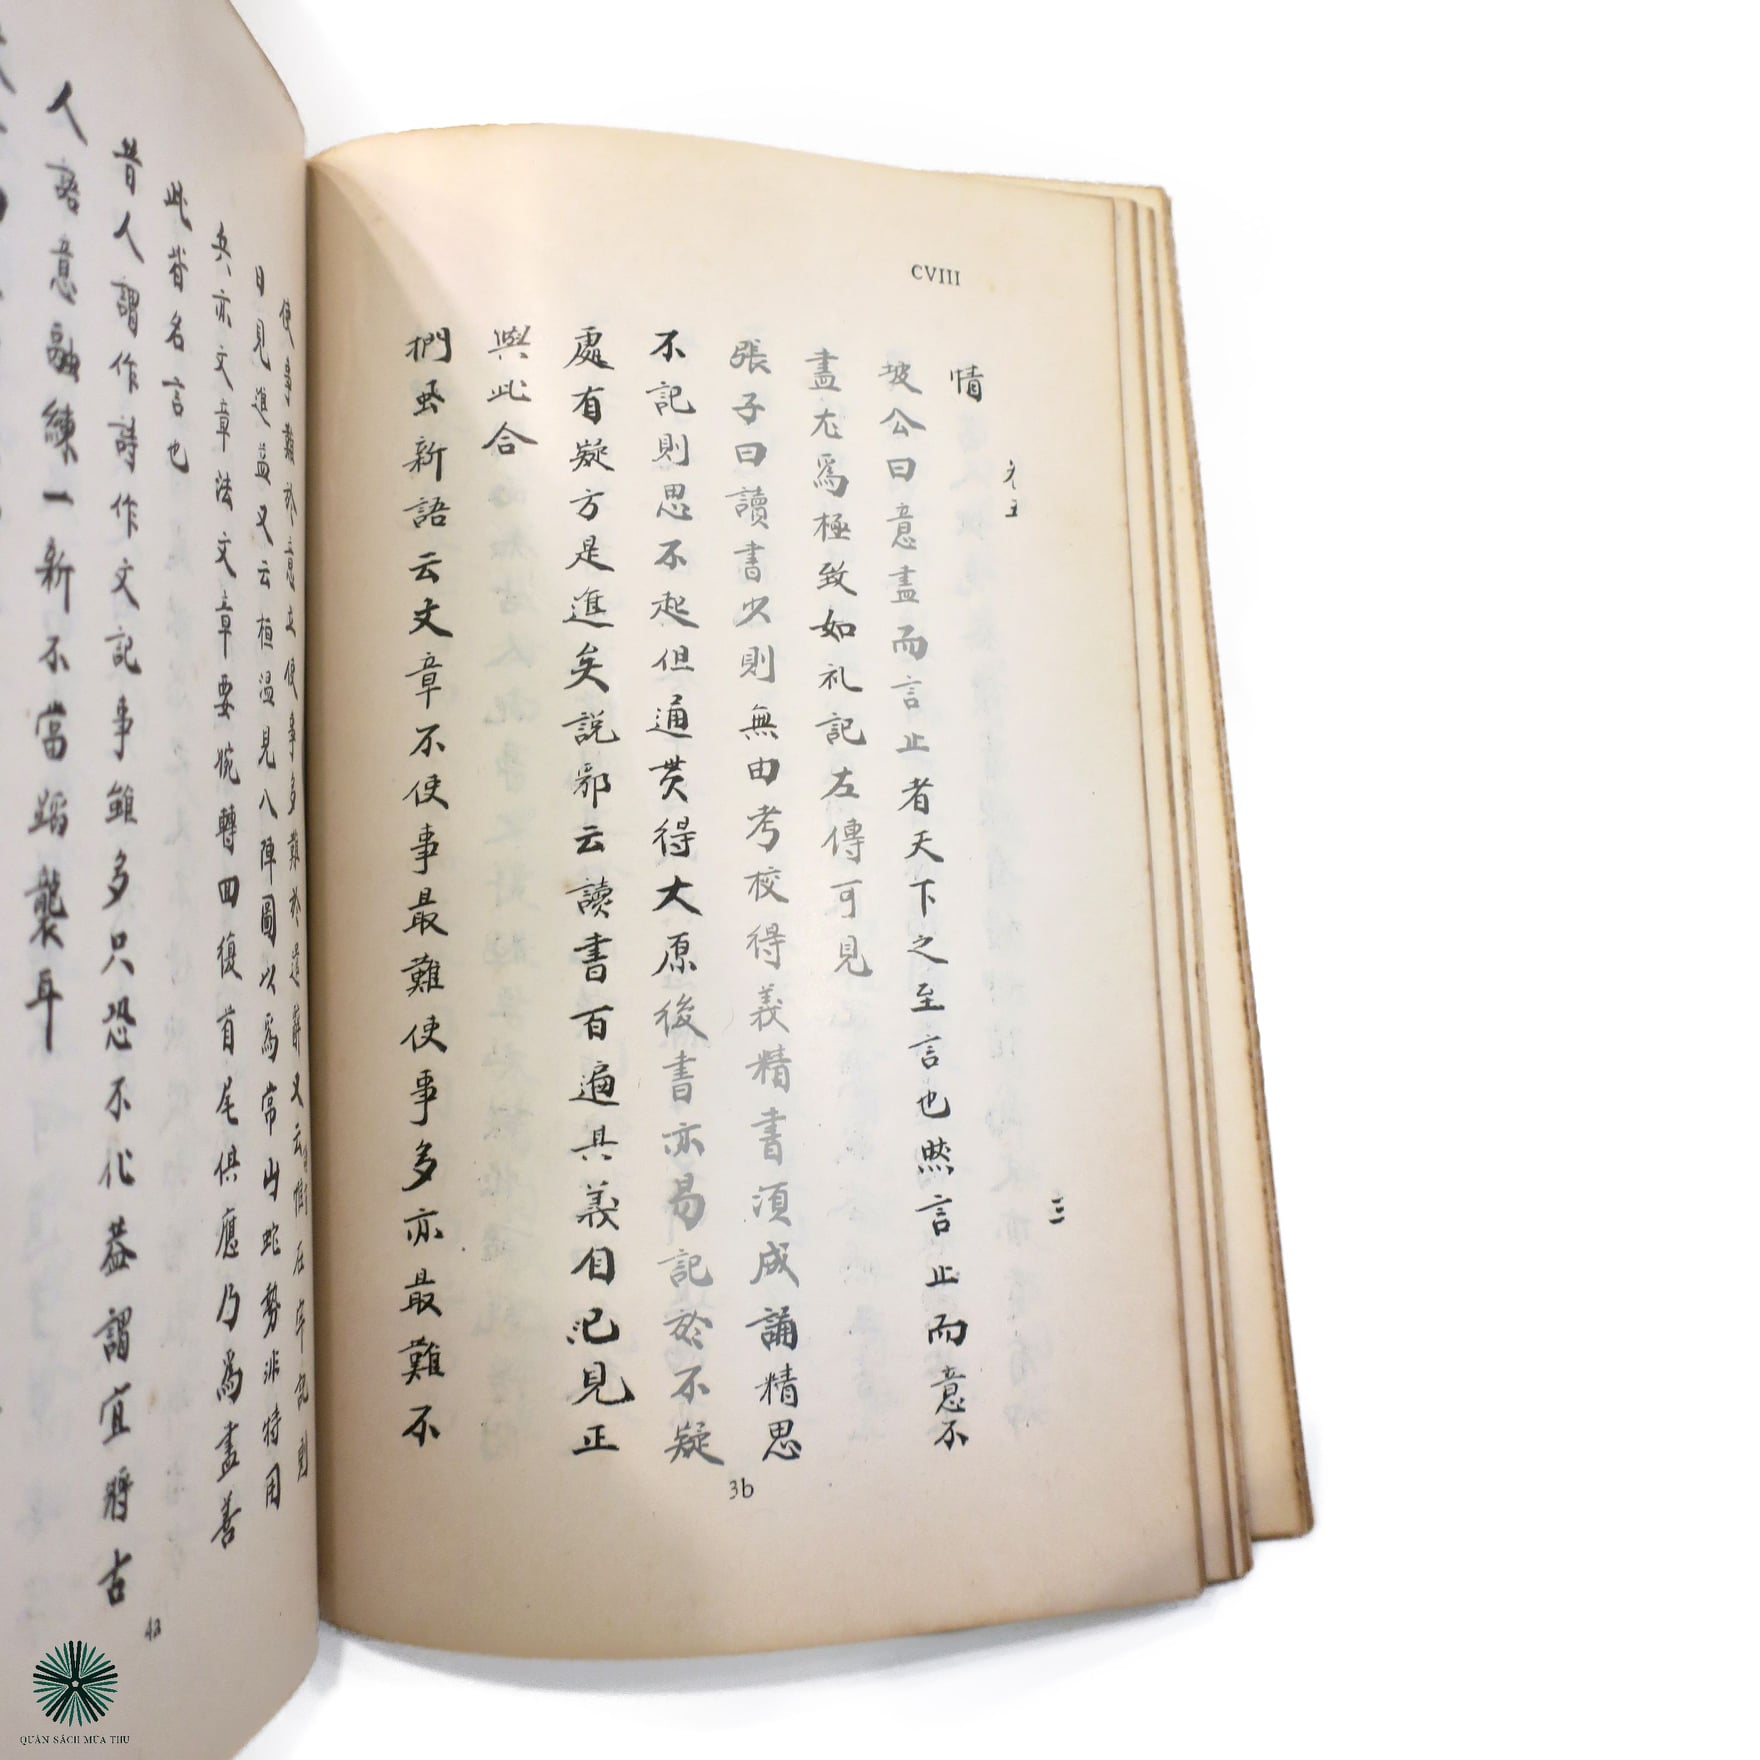 CVIII
卷五
三
情
坡公曰意盡而言止者天下之至言也然言止而意不
盡尤爲極致如礼記左傳可見
張子曰讀書少則無由考校得義精書須成誦精思
不記則思不起但通贯得大原後書亦易記於不疑
處有疑方是進矣説郛云讀書百遍其義自見正
與此合
捫蝨新語云文章不使事最難使事多亦最難不
3b
使事難於立意使事多難於遣辭又云
日見進益又云桓温見八陣圖以爲常山蛇勢非特用
兵亦文章法文章要婉轉回復首尾俱應乃爲盡善
此皆名言也
昔人謂作詩作文記事雖多只恐不化葢謂宜將古
人語意融練一新不當蹈襲耳
4a
QUÁN SÁCH MÙA THU